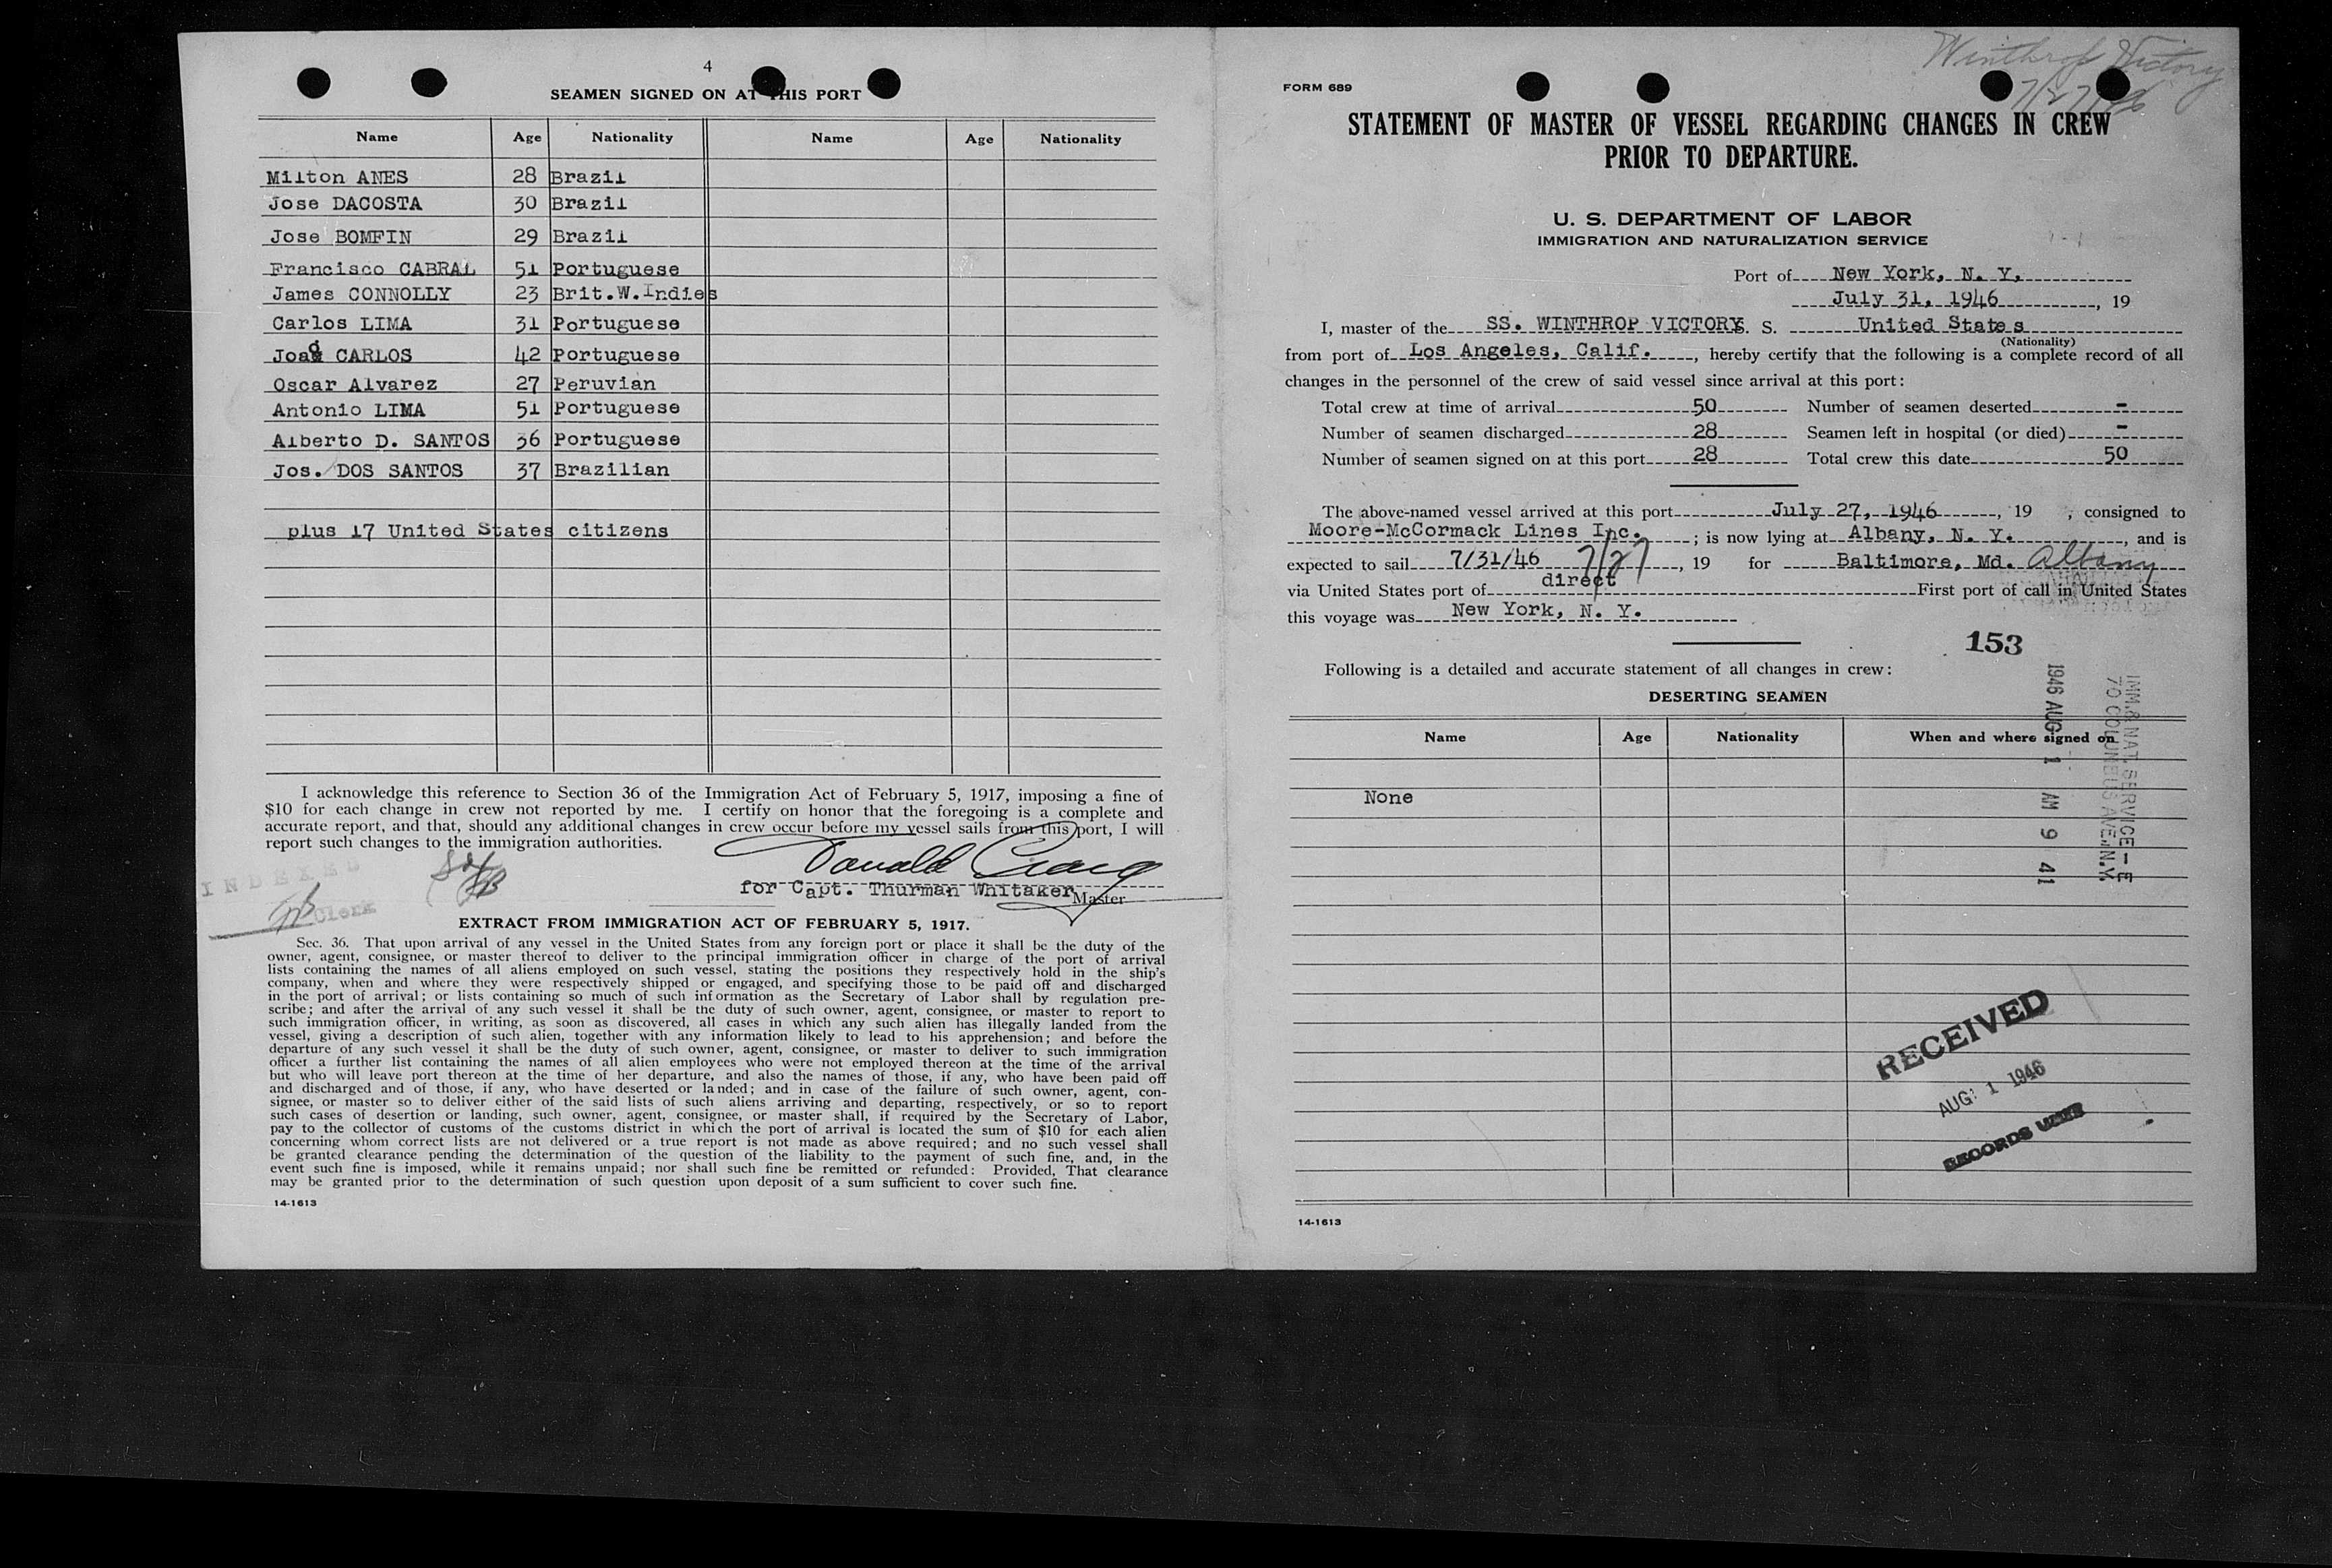 4
SEAMEN SIGNED ON AT THIS PORT
Name Age Nationality Name Age Nationality
Milton ANES 28 Brazil
Jose DACOSTA 30 Brazil
Jose BOMFIN 29 Brazil
Francisco CABRAL 51 Portuguese
James CONNOLLY 23 Brit.W.Indies
Carlos LIMA 31 Portuguese
Joao CARLOS 42 Portuguese
Oscar Alvarez 27 Peruvian
Antonio LIMA 51 Portuguese
Alberto D. SANTOS 36 Portuguese
Jos. DOS SANTOS 37 Brazilian
plus 17 United States citizens
I acknowledge this reference to Section 36 of the Immigration Act of February 5, 1917, imposing a fine of
$10 for each change in crew not reported by me. I certify on honor that the foregoing is a complete and
accurate report, and that, should any additional changes in crew occur before my vessel sails from this port, I will
report such changes to the immigration authorities.
INDEXED
Clerk
Donald Craig
for Capt. Thurman Whitaker Master
EXTRACT FROM IMMIGRATION ACT OF FEBRUARY 5, 1917.
Sec. 36. That upon arrival of any vessel in the United States from any foreign port or place it shall be the duty of the
owner, agent, consignee, or master thereof to deliver to the principal immigration officer in charge of the port of arrival
lists containing the names of all aliens employed on such vessel, stating the positions they respectively hold in the ship's
company, when and where they were respectively shipped or engaged, and specifying those to be paid off and discharged
in the port of arrival; or lists containing so much of such information as the Secretary of Labor shall by regulation pre-
scribe; and after the arrival of any such vessel it shall be the duty of such owner, agent, consignee, or master to report to
such immigration officer, in writing, as soon as discovered, all cases in which any such alien has illegally landed from the
vessel, giving a description of such alien, together with any information likely to lead to his apprehension; and before the
departure of any such vessel it shall be the duty of such owner, agent, consignee, or master to deliver to such immigration
officer a further list containing the names of all alien employees who were not employed thereon at the time of the arrival
but who will leave port thereon at the time of her departure, and also the names of those, if any, who have been paid off
and discharged and of those, if any, who have deserted or landed; and in case of the failure of such owner, agent, con-
signee, or master so to deliver either of the said lists of such aliens arriving and departing, respectively, or so to report
such cases of desertion or landing, such owner, agent, consignee, or master shall, if required by the Secretary of Labor,
pay to the collector of customs of the customs district in which the port of arrival is located the sum of $10 for each alien
concerning whom correct lists are not delivered or a true report is not made as above required; and no such vessel shall
be granted clearance pending the determination of the question of the liability to the payment of such fine, and, in the
event such fine is imposed, while it remains unpaid; nor shall such fine be remitted or refunded: Provided, That clearance
may be granted prior to the determination of such question upon deposit of a sum sufficient to cover such fine.
14-1613
Winthrop Victory
FORM 689
STATEMENT OF MASTER OF VESSEL REGARDING CHANGES IN CREW
PRIOR TO DEPARTURE.
U. S. DEPARTMENT OF LABOR
IMMIGRATION AND NATURALIZATION SERVICE
Port of New York, N. Y.
July 31, 1946, 19
I, master of the SS. WINTHROP VICTORY S. S. United States
(Nationality)
from port of Los Angeles, Calif., hereby certify that the following is a complete record of all
changes in the personnel of the crew of said vessel since arrival at this port:
Total crew at time of arrival 50 Number of seamen deserted -
Number of seamen discharged 28 Seamen left in hospital (or died) -
Number of seamen signed on at this port 28 Total crew this date 50
The above-named vessel arrived at this port July 27, 1946, 19 , consigned to
Moore-McCormack Lines Inc. ; is now lying at Albany, N. Y. , and is
expected to sail 7/31/46 7/27, 19 for Baltimore, Md. Albany
via United States port of direct First port of call in United States
this voyage was New York, N. Y.
153
Following is a detailed and accurate statement of all changes in crew:
DESERTING SEAMEN
Name Age Nationality When and where signed on
None
1946 AUG 1 AM 9 41
IMM. & NAT. SERVICE-E
70 COLUMBUS AVE. N.Y.
RECEIVED
AUG 1 1946
RECORDS UNIT
14-1613